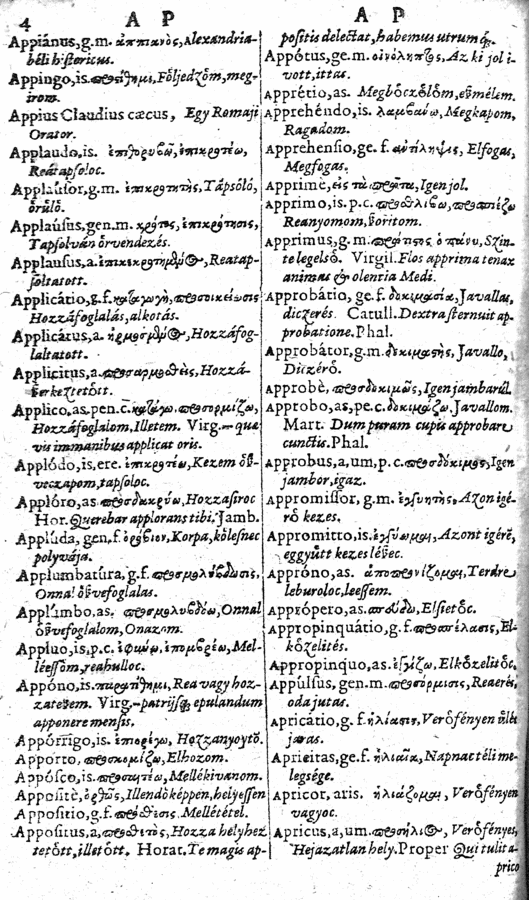 4 A P
Appiánus, g.m. ἀππιανὸς, Alexandria-
béli historicus.
Appingo, is. προστίθημι, Följedzőm, meg-
irom.
Appius Claudius cæcus, Egy Romaji
Orator.
Applaudo, is. ἐπιθορυβῶ, ἐπικροτέω,
Reátapsoloc.
Applausor, g.m. ἐπικροτητὴς, Tápsóló,
örülő.
Applausus, gen.m. κρότος, ἐπικρότησις,
Tapsolván örvendezés.
Applausus, a. Reatap-
soltatott.
Applicátio, g.f. προσοικείωσις
Hozzáfoglalás, alkotás.
Applicátus, a. Hozzáfog-
laltatott.
Applicitus, a. Hozzá-
kerkeztetött.
Applico, as. pen. c. προσορμίζω,
Hozzáfoglalom, Illetem. Virg. -- quæ
vis immanibus applicat oris.
Applódo, is, ere. ἐπικροτέω, Kezem öß-
veczapom, tapsoloc.
Applóro, as. προσδακρύω, Hozzasiroc
Hor. Querebar applorans tibi. Jamb.
Applúda, gen. f. Korpa, kölesnec
polyvája.
Applumbatúra, g.f. προσμολύβδωσις,
Onnal ößvefoglalas.
Applúmbo, as. προσμολυβδόω, Onnal
ößvefoglalom, Onazom.
Appluo, is, p.c. ἐφύω, ἐπομβρέω, Mel-
léessőm, reahulloc.
Appóno, is. παρατίθημι, Rea vagy hoz-
zateßem. Virg. -- patrijsq; epulandum
apponere mensis.
Appórrigo, is. Hozzanyoytő.
Apporto, προσκομίζω, Elhozom.
Appósco, is. Mellékivanom.
Appositè, ὀρθῶς, Illendőképpen, helyessen
Appositio, g.f. πρόσθεσις, Mellététel.
Appositus, a, Hozza helyhez
tetőtt, illetött. Horat. Te magis ap-
A P
positis delectat, habemus utrumq;.
Appótus, ge.m. οἰνόληπτος, Az ki jol i-
vott, ittas.
Apprétio, as. Megböczüllöm,
Apprehéndo, is. λαμβάνω, Megkapom,
Ragadom.
Apprehensio, ge. f. ἀντίληψις, Elfogas,
Megfogas.
Apprimè, εἰς τὰ πρῶτα, Igen jol.
Apprimo, is. p.c. προσθλίβω,
Reanyomom, ßoritom.
Apprimus, g.m. Szin-
te legelső. Virgil. Flos apprima tenax
animæ & olentia Medi.
Approbátio, ge. f. δοκιμασία, Javallas,
diczérés. Catull. Dextra sternuit ap-
probatione. Phal.
Approbátor, g.m. δοκιμαστὴς, Javallo,
Diczérő.
Approbè, Igen jambarúl.
Approbo, as, pe.c. δοκιμάζω. Javallom.
Mart. Dum puram cupis approbare
cunctis. Phal.
Approbus, a, um, p.c. προσδόκιμος, Igen
jambor, igaz.
Appromissor, g.m. ἐγγυητὴς, Azon igé-
rő kezes.
Appromitto, is. Azont igérő,
eggyütt kezes léßec.
Appróno, as. Terdre
leburoloc, leessem.
Apprópero, as. σπεύδω, Elsietöc.
Appropinquátio, g.f. προσπέλασις, El-
közelités.
Appropinquo, as. ἐγγίζω, Elközelitöc.
Appúlsus, gen.m. προσόρμισις, Reaerés,
oda jutas.
Apricátio, g.f. ἡλίασις, Verőfényen ülés
jaras.
Aprieitas, ge.f. Napnac téli me-
legsége.
Apricor, aris. ἡλιάζομαι, Verőfényen
vagyoc.
Apricus, a, um. Verőfényes,
Hejazatlan hely. Proper Qui tulit a-
prico